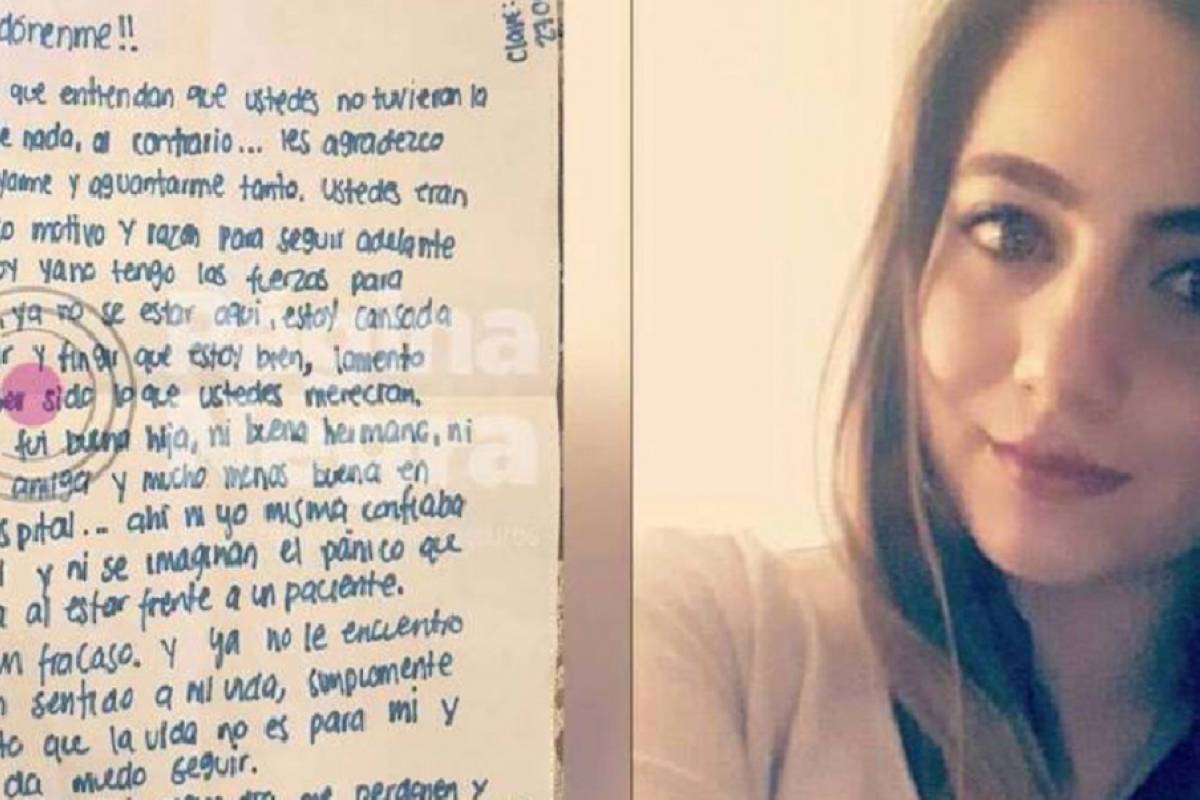 dórenme!!
Clave:
que entiendan que ustedes no tuvieron la
e nada, al contrario... les agradezco
y aguantarme tanto. Ustedes eran
o motivo y razon para seguir adelante
oy ya no tengo las fuerzas para
, ya no se estar aqui, estoy cansada
r y fingir que estoy bien, lamento
er sido lo que ustedes merecian.
fui buena hija, ni buena hermana, ni
amiga y mucho menos buena en
spital... ahi ni yo misma confiaba
y ni se imaginan el pánico que
a al estar frente a un paciente.
n fracaso. Y ya no le encuentro
n sentido a mi vida, simplemente
to que la vida no es para mi y
da muedo seguir.
me perdonen y